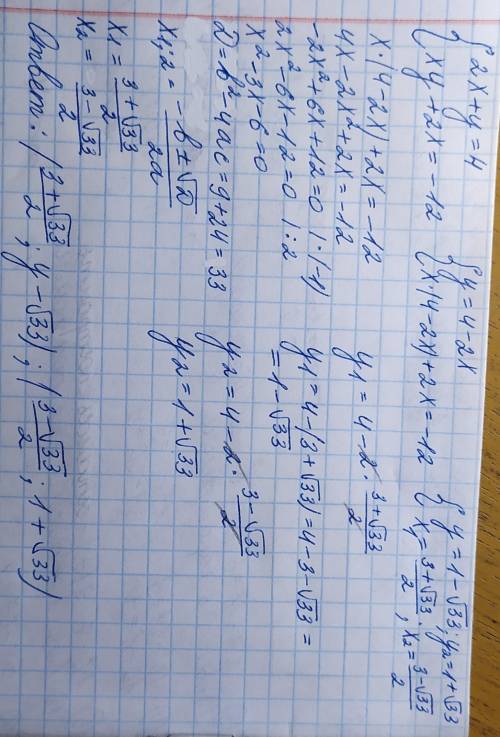 {2x+y=4
{xy+2x=-12
{y=4-2x
{x·(4-2x)+2x=-12
{y=1-√33; y2=1+√33
{x1=(3+√33)/2; x2=(3-√33)/2
x·(4-2x)+2x=-12
4x-2x²+2x=-12
-2x²+6x+12=0 |·(-1)
2x²-6x-12=0 |:2
x²-3x-6=0
D=b²-4ac=9+24=33
x1;2=(-b±√D)/2a
x1=(3+√33)/2
x2=(3-√33)/2
y1=4-2·(3+√33)/2
y1=4-(3+√33)=4-3-√33=
=1-√33
y2=4-2·(3-√33)/2
y2=1+√33
Ответ: ((3+√33)/2; y-√33); ((3-√33)/2; 1+√33)